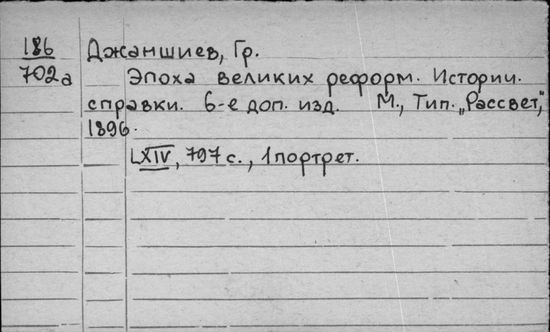 186 Джаншиев, Гр.
702а Эпоха великих реформ. Историч.
справки. 6-е доп. изд. М., Тип. „Рассвет",
1896.
LXIV, 797 с., 1 портрет.